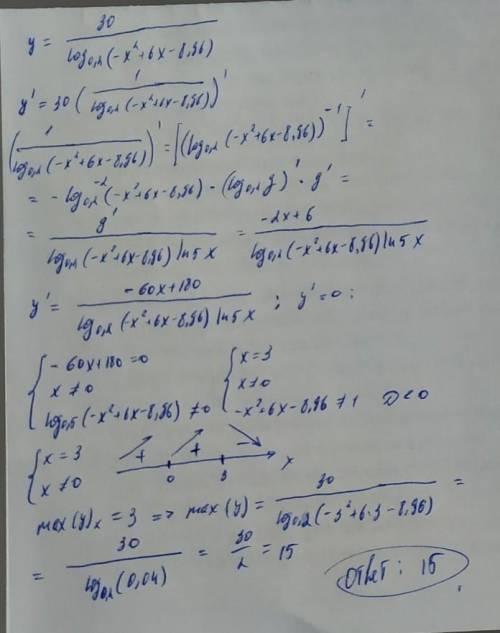 y = 30 / log₀,₂(-x²+6x-8,96)
y' = 30 ( 1 / log₀,₂(-x²+6x-8,96) )'
( 1 / log₀,₂(-x²+6x-8,96) )' = [(log₀,₂(-x²+6x-8,96))⁻¹]' =
= -log₀,₂⁻²(-x²+6x-8,96) · (log₀,₂ g)' · g' =
= g' / log₀,₂(-x²+6x-8,96) ln5 x = -2x+6 / log₀,₂(-x²+6x-8,96) ln5 x
y' = -60x+180 / log₀,₂(-x²+6x-8,96) ln5 x ; y'=0 :
{ -60x+180=0 { x=3
x≠0 x≠0
log₀,₅(-x²+6x-8,96) ≠0 -x²+6x-8,96 ≠1 D<0
{ x=3 + + -
x≠0 0 3 x
max(y)ₓ = 3 => max(y) = 30 / log₀,₂(-3²+6·3-8,96) =
= 30 / log₀,₂(0,04) = 30/2 = 15 Ответ: 15